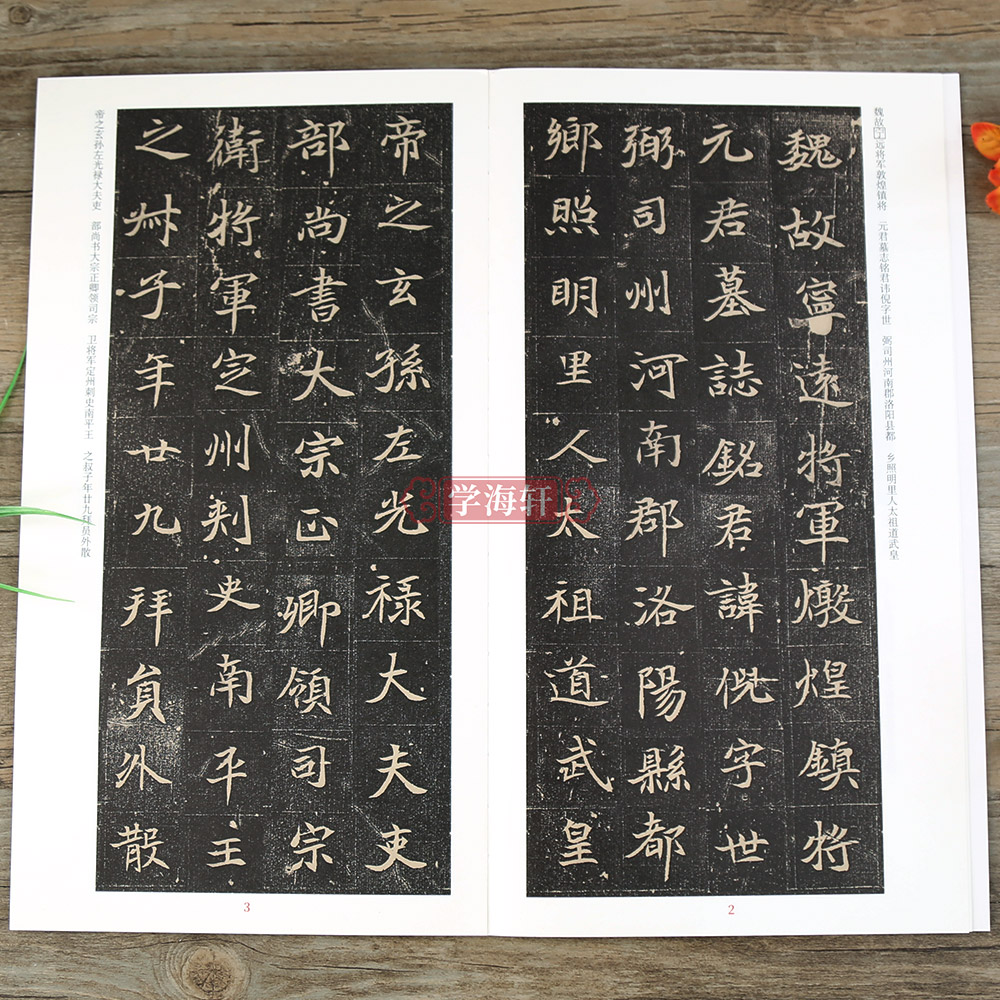 魏故寧遠將軍燉煌鎮將
元君墓誌銘君諱倪字世
弼司州河南郡洛陽縣都
鄉照明里人太祖道武皇
魏故宁远将军敦煌镇将 元君墓志铭君讳倪字世 弼司州河南郡洛阳县都 乡照明里人太祖道武皇
2
帝之玄孫左光祿大夫吏
部尚書大宗正卿領司宗
衛將軍定州刺史南平王
之叔子年廿九拜員外散
帝之玄孙左光禄大夫吏 部尚书大宗正卿领司宗 卫将军定州刺史南平王 之叔子年廿九拜员外散
3
学海轩